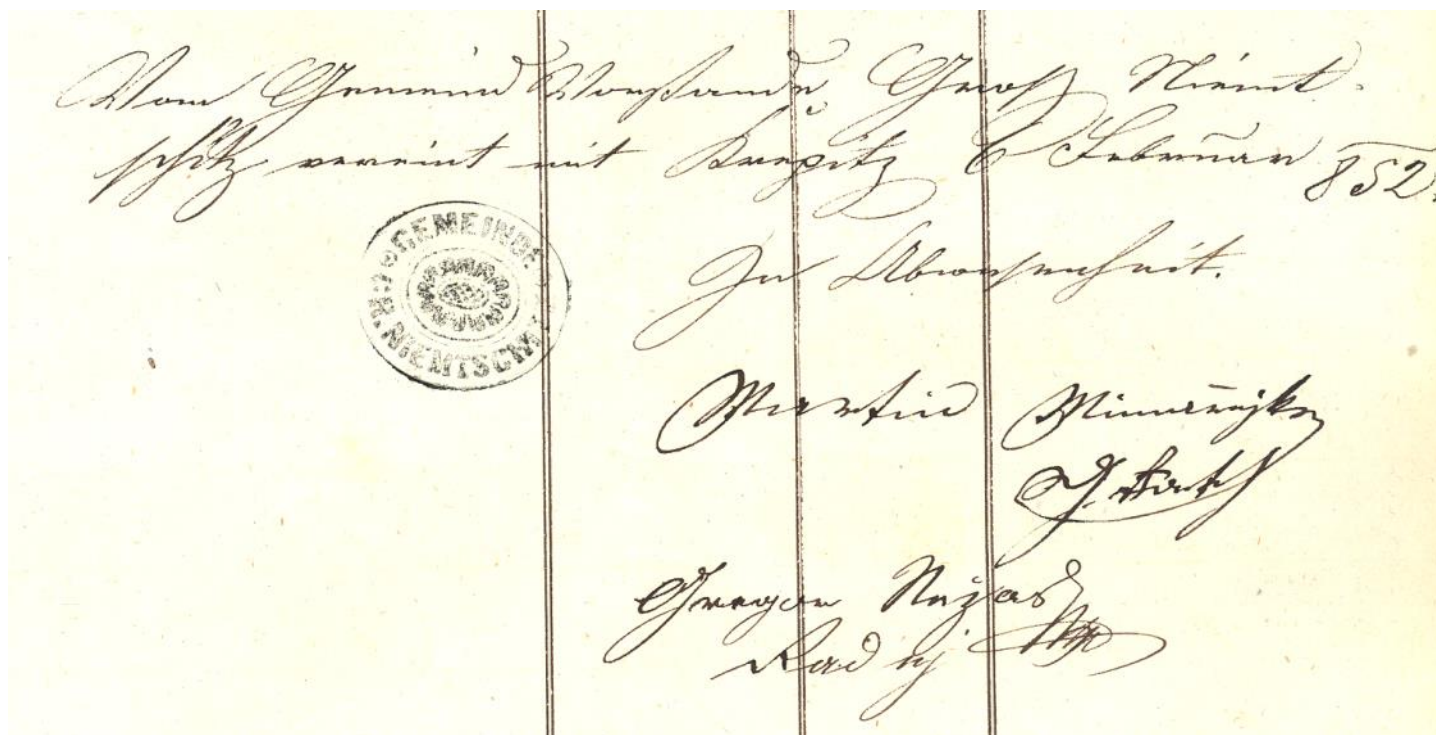 Vom Gemeind Vorstande Groß Niemt-
schitz vereint mit Krepitz 6 Februar 852.
GEMEINDE
GR. NIEMTSCH
In Abwesenheit.
Martin
Gregor Nezas
Radný